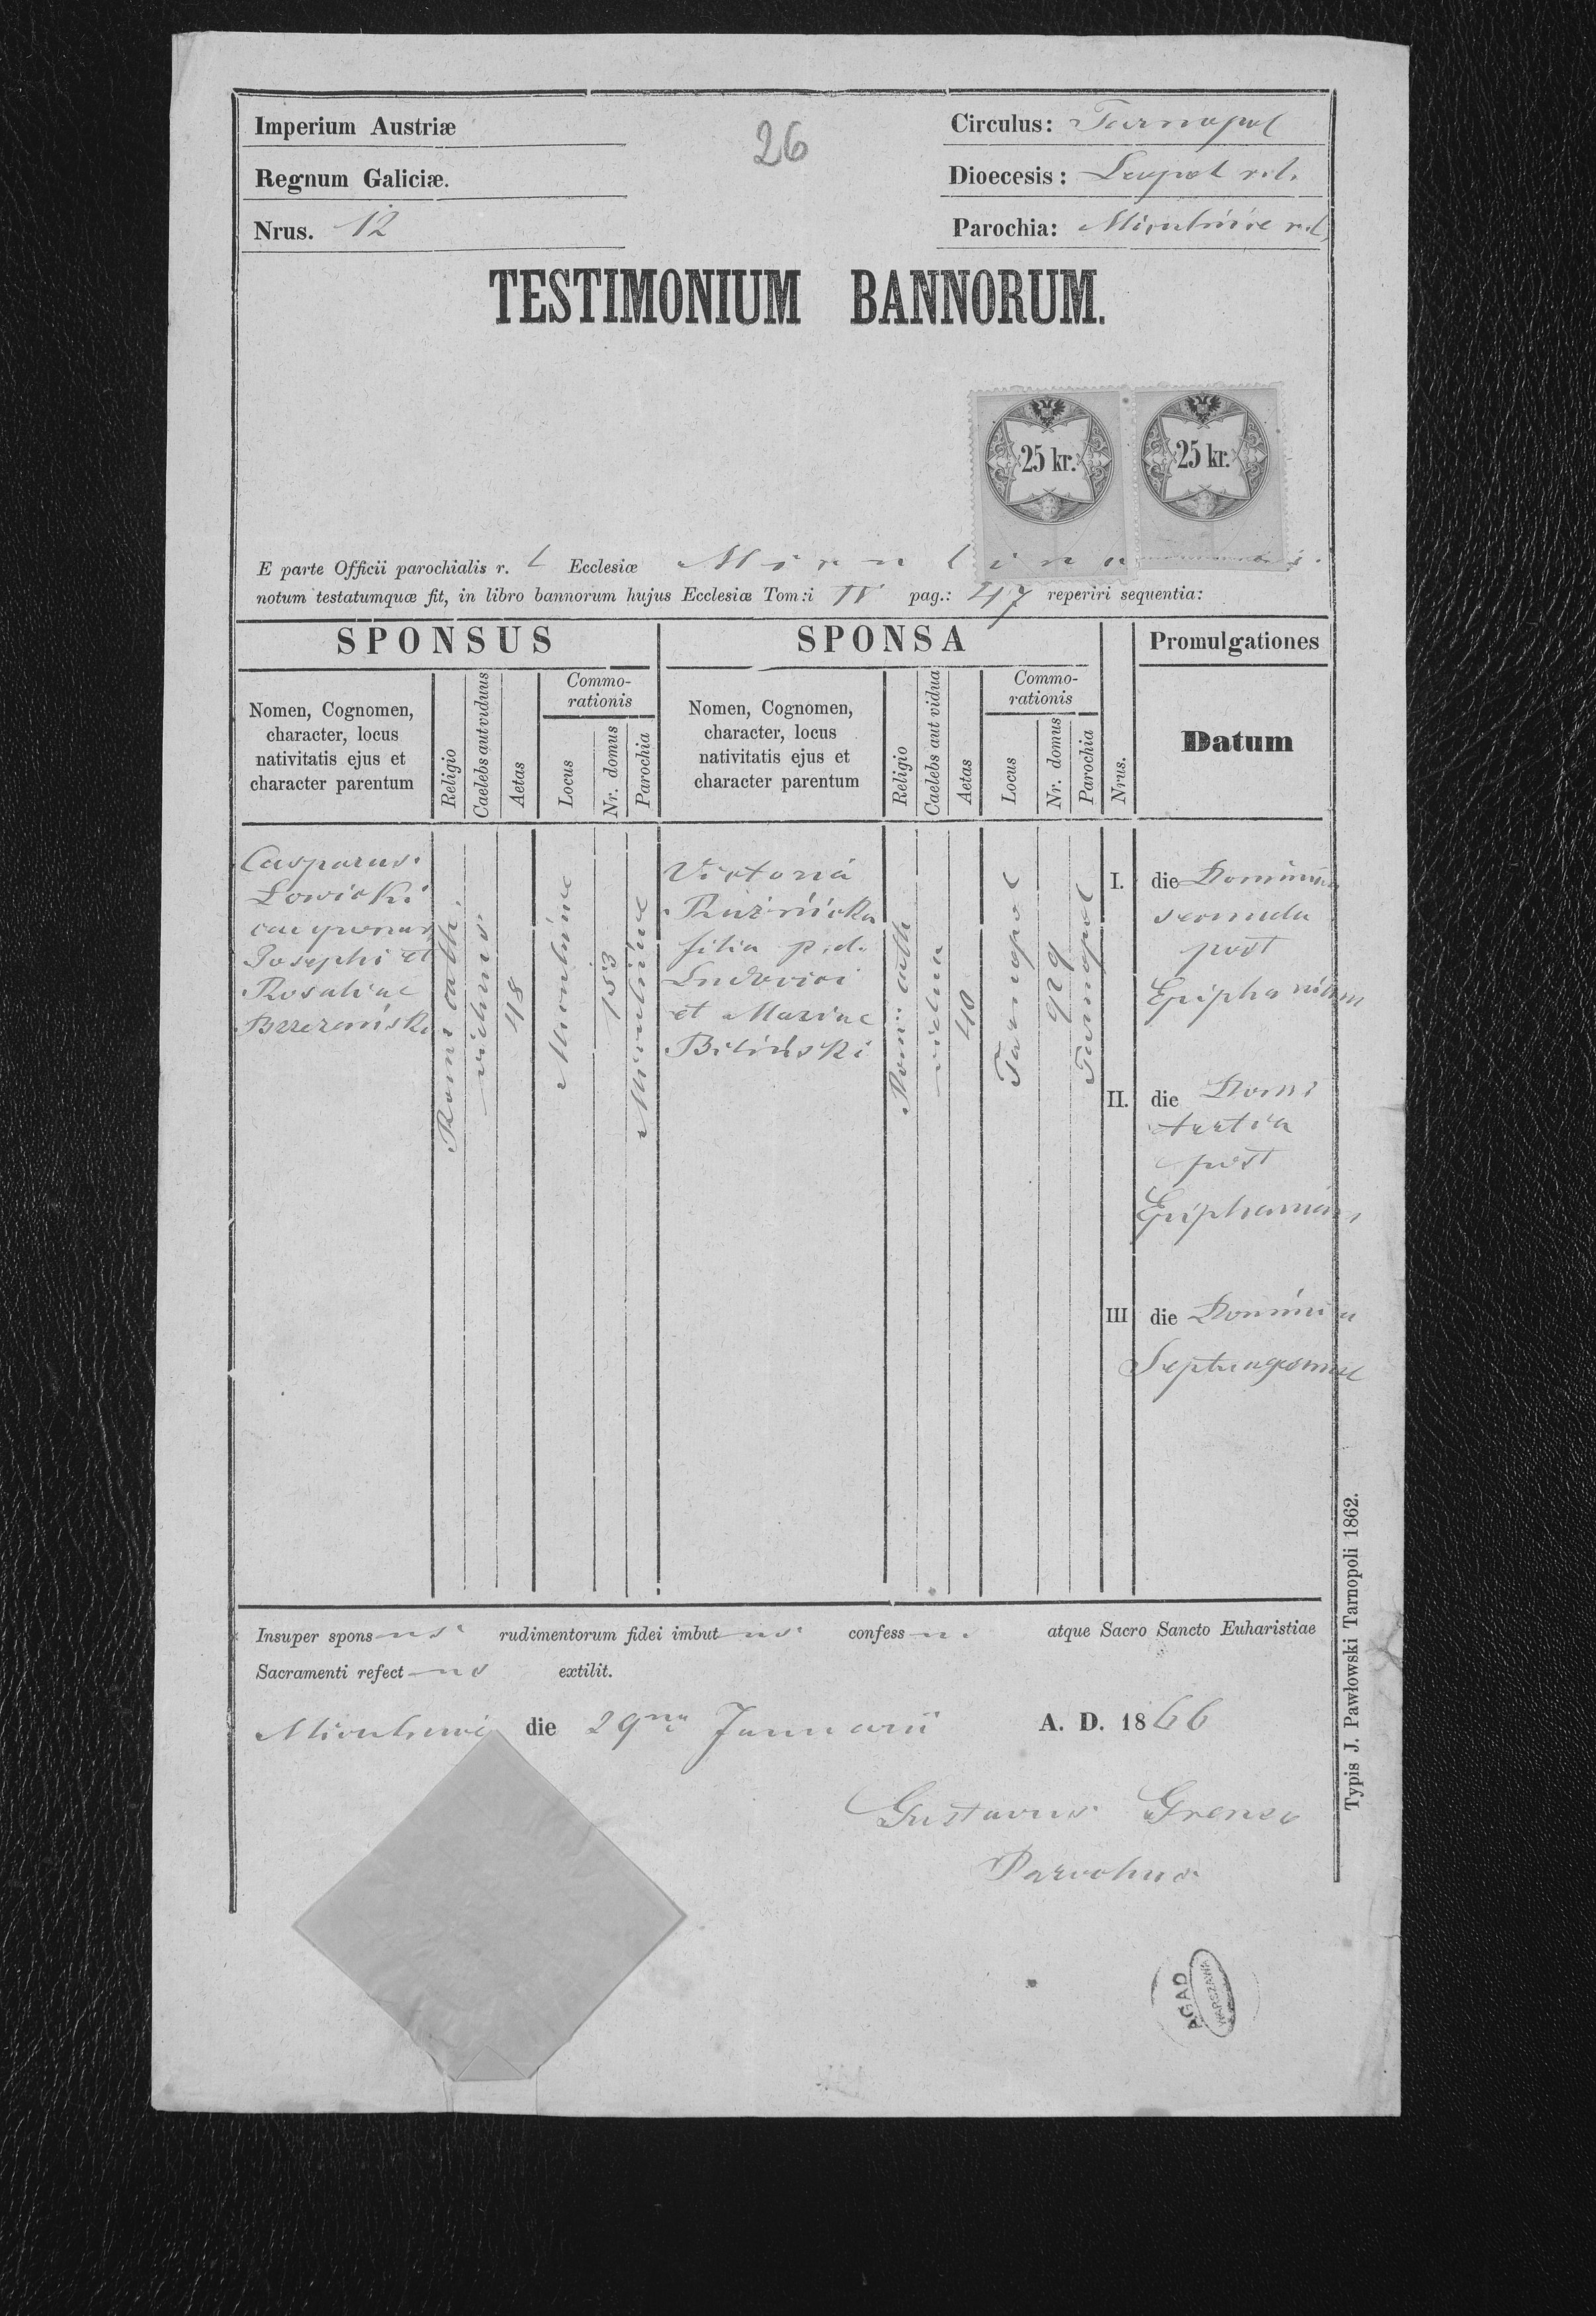 Imperium Austriæ
Regnum Galiciæ.
Nrus. 12
26
Circulus: Tarnopol
Dioecesis: Leopol r. l.
Parochia: Mikulińce r. l.
TESTIMONIUM BANNORUM.
25 kr. 25 kr.
E parte Officii parochialis r. l Ecclesiæ
notum testatumquæ fit, in libro bannorum hujus Ecclesiæ Tom:i IV pag.: 47 reperiri sequentia:
SPONSUS
SPONSA
Promulgationes
Nomen, Cognomen,
character, locus
nativitatis ejus et
character parentum
Religio
Caelebs aut viduus
Aetas
Commo-
rationis
Locus
Nr. domus
Parochia
Nomen, Cognomen,
character, locus
nativitatis ejus et
character parentum
Religio
Caelebs aut vidua
Aetas
Commo-
rationis
Locus
Nr. domus
Parochia
Nrus.
Datum
Casparus
Łowicki
Josephi et
Rosaliae
Brzezański
Rom: cath:
viduus
48
Mikulińce
153
Mikulińce
Victoria
Ruźnicka
filia p. d.
Ludovici
et Mariae
Biliński
Rom: cath
vidua
40
Tarnopol
929
Tarnopol
I. die Dominica
secunda
post
Epiphaniam
II. die Dom:
tertia
post
Epiphaniam
III die Dominica
Septuagesimae
Insuper spons us rudimentorum fidei imbut us confess us atque Sacro Sancto Euharistiae
Sacramenti refect us extilit.
Mikulińce die 29na Januarii A. D. 1866
Gustavus
Parochus
AGAD
WARSZAWA
Typis J. Pawłowski Tarnopoli 1862.